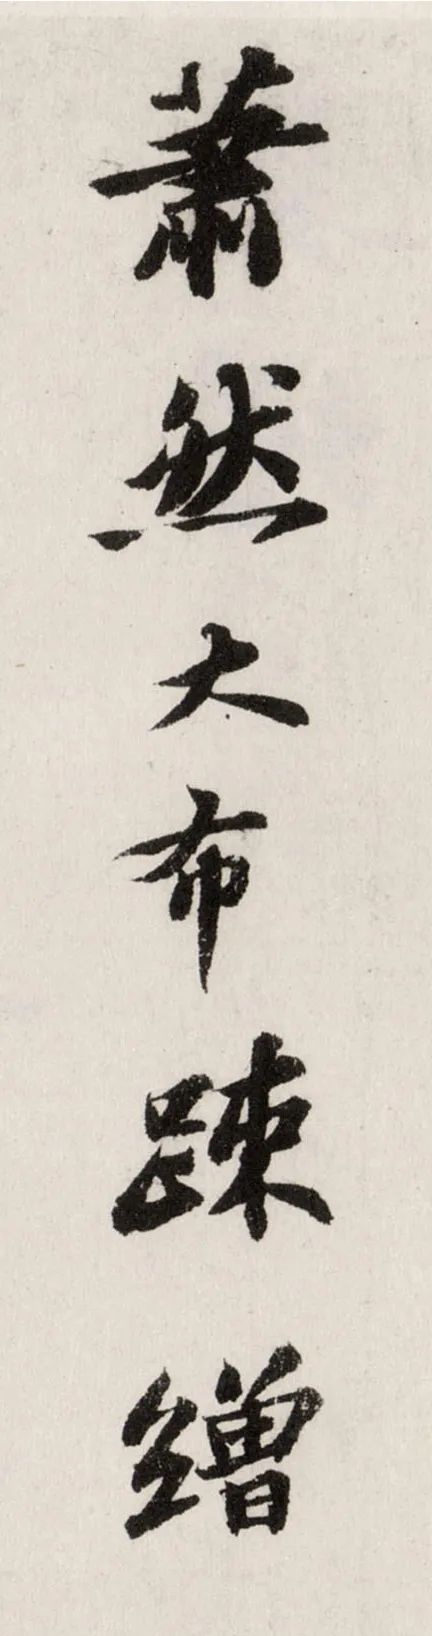 蕭然大布疎繒